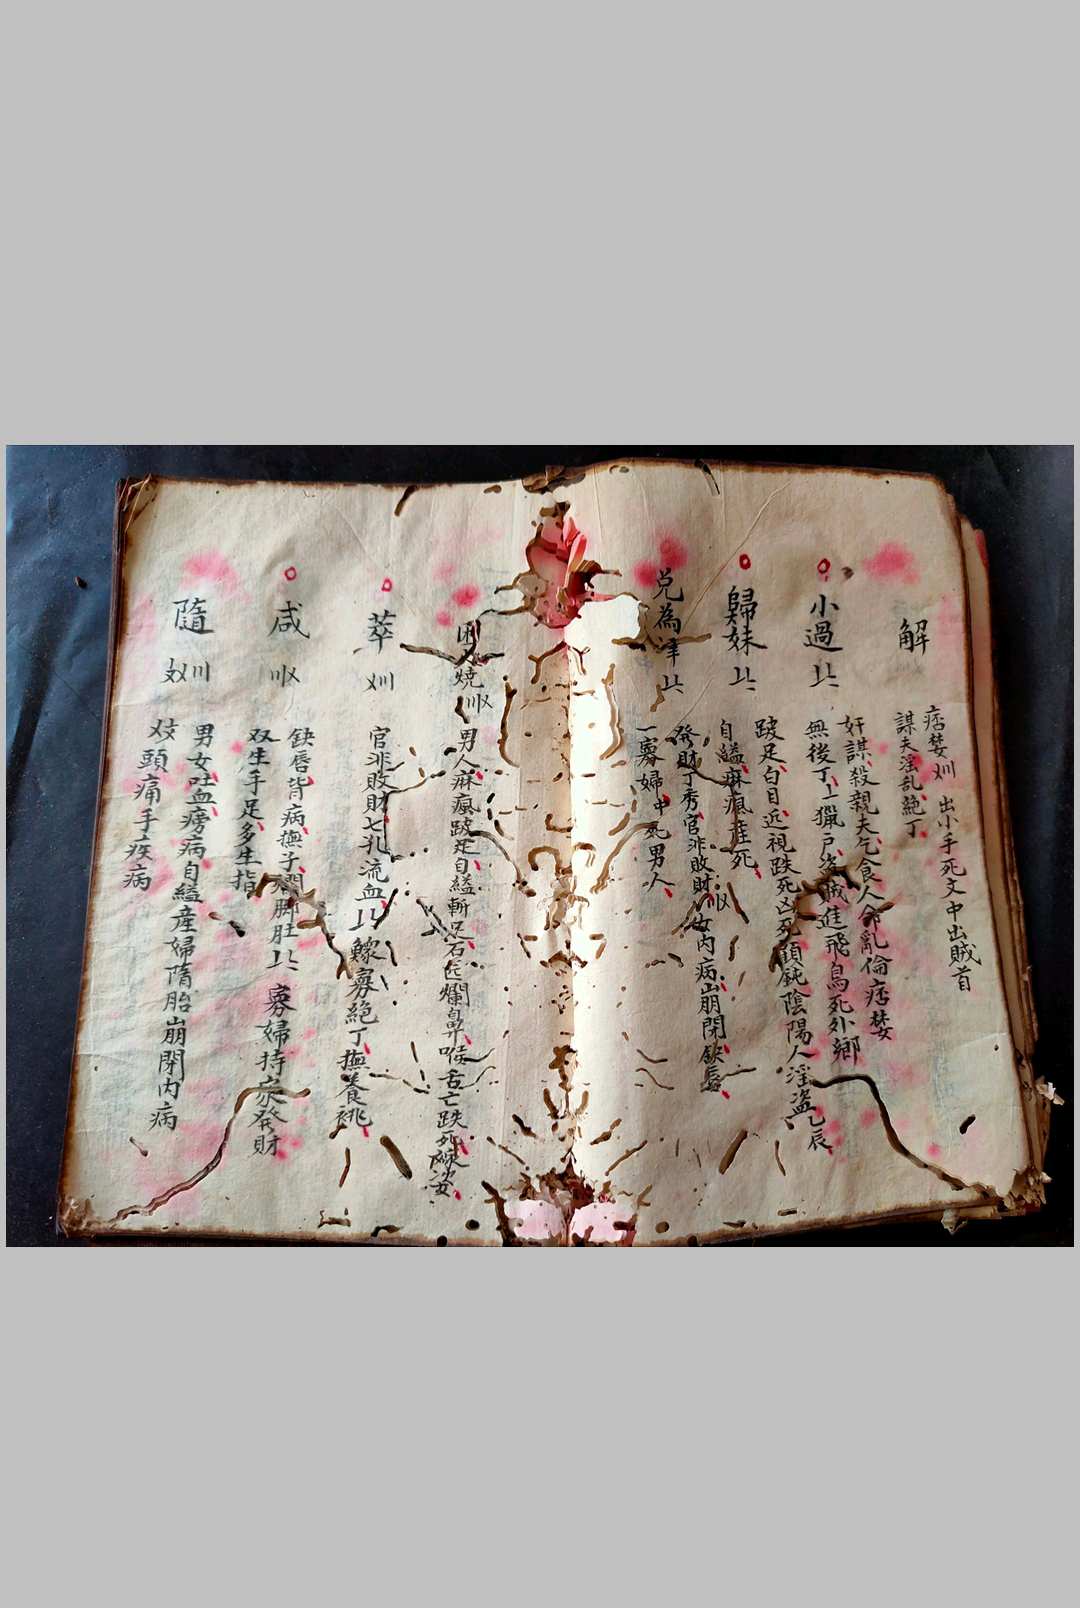 解
痞婪〤〣 出小手死文中出賊首
謀夫淫乱絶丁
小過 〢〦
奸謀殺親夫乞食人命亂倫痞婪
無後丁〦獵戶盗賊進飛鳥死外鄉
歸妹 〢〦
跛足白目近視跌死凶死頑鈍陰陽人淫盗乙辰
自縊麻瘋産死
兌為澤
發財丁秀官非敗財 女内病崩閉缺唇
一寡婦中 男人
困
男人麻瘋跛足自縊斬足石匠爛鼻喉舌亡跌死
萃 〤〣
官非敗財七孔流血 鰥寡絶丁撫養
咸 〣〤
缺唇背病撫子 脚肚 寡婦持家發財
双生手足多生指
隨
男女吐血癆病自縊産婦隋胎崩閉内病
頭痛手疾病